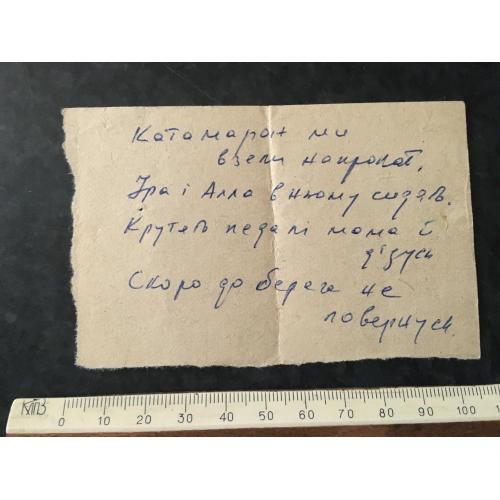 Катамаран ми
взяли напрокат,
Іра і Алла в ньому сидять.
Крутять педалі мама й
дідусь
Скоро до берега не
повернусь.
КПЗ
0 10 20 30 40 50 60 70 80 90 100